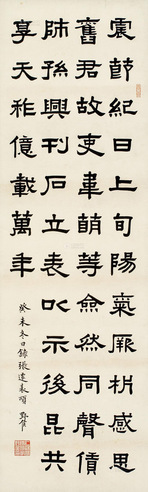 震節紀日上旬陽氣厥析感思
舊君故吏韋萌等僉然同聲賃
師孫興刊石立表以示後昆共
享天祚億載萬年
癸未冬日錄張遷表頌